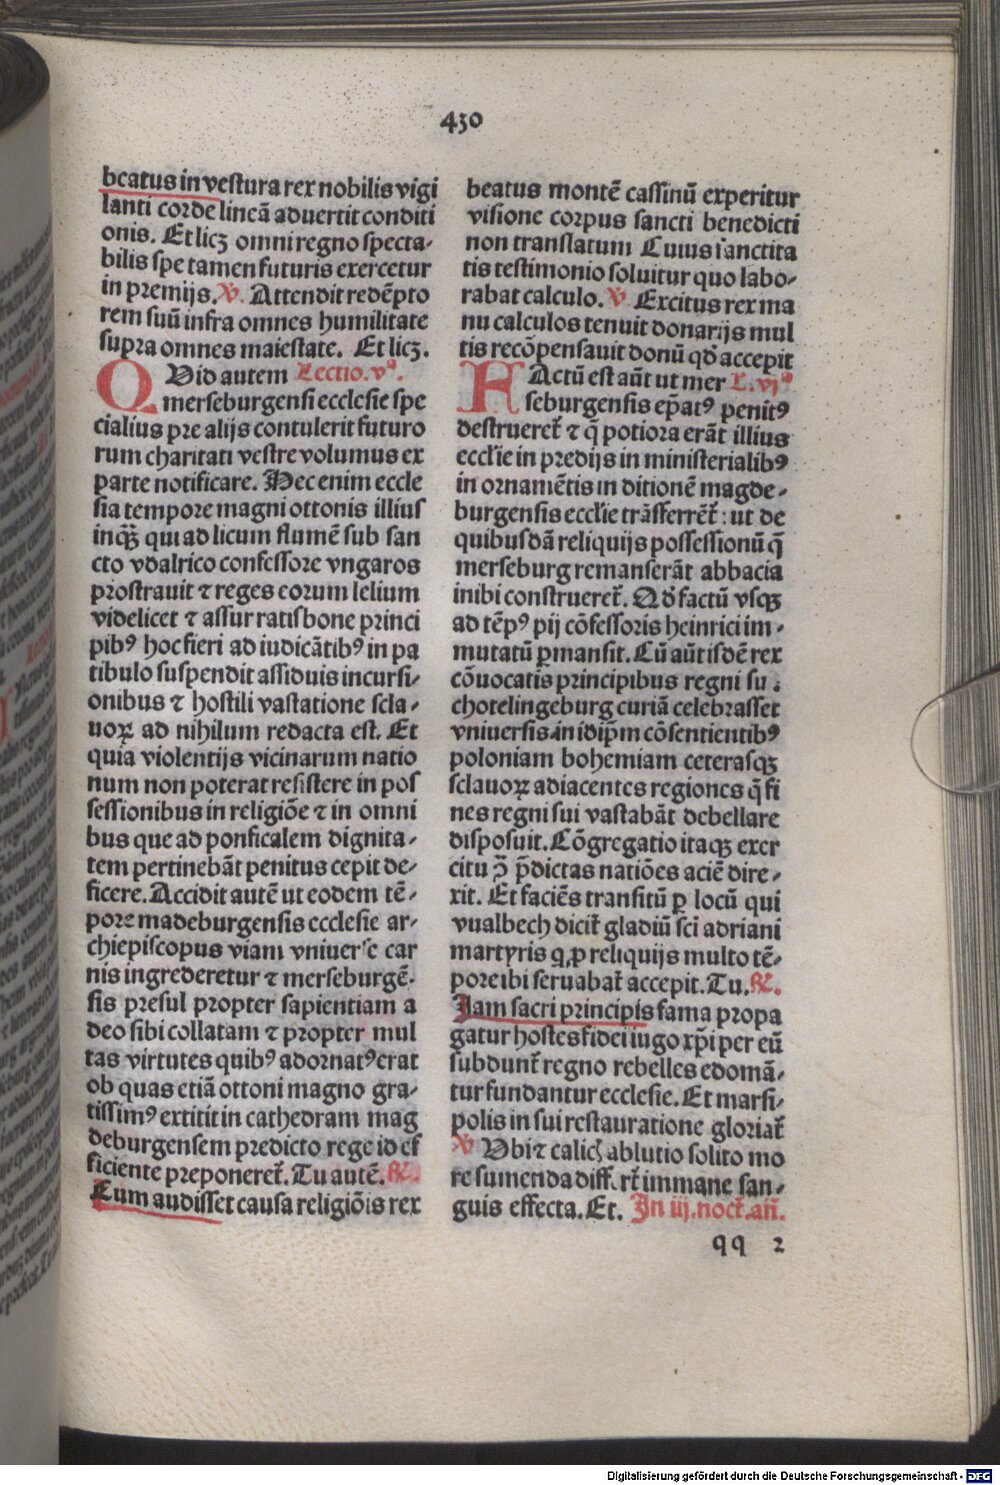 430
beatus in vestura rex nobilis vigi
lanti corde lineā aduertit conditi
onis. Et licꝫ omni regno specta⸗
bilis spe tamen futuris exercetur
in premijs. ℣. Attendit redēpto
rem suū infra omnes humilitate
supra omnes maiestate. Et licꝫ.
QVid autem Lectio.vᵃ.
merseburgensi ecclesie spe
cialius pre alijs contulerit futuro
rum charitati vestre volumus ex
parte notificare. Hec enim eccle
sia tempore magni ottonis illius
inqꝫ qui ad licum flumē sub san
cto vdalrico confessore vngaros
prostrauit ⁊ reges eorum lelium
videlicet ⁊ assur ratisbone princi
pibꝰ hoc fieri adiudicātibꝰ in pa
tibulo suspendit assiduis incursi⸗
onibus ⁊ hostili vastatione scla⸗
uoꝝ ad nihilum redacta est. Et
quia violentijs vicinarum natio
num non poterat resistere in pos
sessionibus in religiōe ⁊ in omni
bus que ad ponficalem dignita⸗
tem pertinebāt penitus cepit de⸗
ficere. Accidit autē ut eodem tē⸗
pore madeburgensis ecclesie ar⸗
chiepiscopus viam vniuerse car
nis ingrederetur ⁊ merseburgē⸗
sis presul propter sapientiam a
deo sibi collatam ⁊ propter mul
tas virtutes quibꝰ adornatꝰ erat
ob quas etiā ottoni magno gra⸗
tissimꝰ extitit in cathedram mag
deburgensem predicto rege id ef
ficiente preponeret̄. Tu autē. ℟.
Cum audisset causa religiōis rex
beatus montē cassinū experitur
visione corpus sancti benedicti
non translatum Cuius sanctita
tis testimonio soluitur quo labo⸗
rabat calculo. ℣ Excitus rex ma
nu calculos tenuit donarijs mul
tis recōpensauit donū qd̄ accepit
FActū est aūt ut mer L.vjᵃ
seburgensis ep̄atꝰ penitꝰ
destrueret̄ ⁊ q̄ potiora erāt illius
eccl̄ie in predijs in ministerialibꝰ
in ornamētis in ditionē magde⸗
burgensis eccl̄ie trāsferrēt̄: ut de
quibusdā reliquijs possessionū q̄
merseburg remanserāt abbacia
inibi construeret̄. Qd̄ factū vsqꝫ
ad tēpꝰ pij cōfessoris heinrici im⸗
mutatū ꝑmansit. Cū aūt isdē rex
cōuocatis principibus regni sui
chotelingeburg curiā celebrasset
vniuersis in idip̄m cōsentientibꝰ
poloniam bohemiam ceterasqꝫ
sclauoꝝ adiacentes regiones q̄ fi
nes regni sui vastabāt debellare
disposuit. Cōgregatio itaqꝫ exer
citu ꝯ̄ p̄dictas natiōes aciē dire⸗
xit. Et faciēs transitū ꝑ locū qui
vualbech dicit̄ gladiū sci adriani
martyris q̄ ꝓ reliquijs multo tē⸗
pore ibi seruabat̄ accepit. Tu. ℟.
Jam sacri principis fama propa
gatur hostes fidei iugo xp̄i per eū
subdunt̄ regno rebelles edomā⸗
tur fundantur ecclesie. Et marsi⸗
polis in sui restauratione gloriat̄
℣ Vbi ⁊ calicꝭ ablutio solito mo
re sumenda diff.rt̄ immane san⸗
guis effecta. Et. In iij.noct̄.an̄.
qq 2
Digitalisierung gefördert durch die Deutsche Forschungsgemeinschaft - DFG